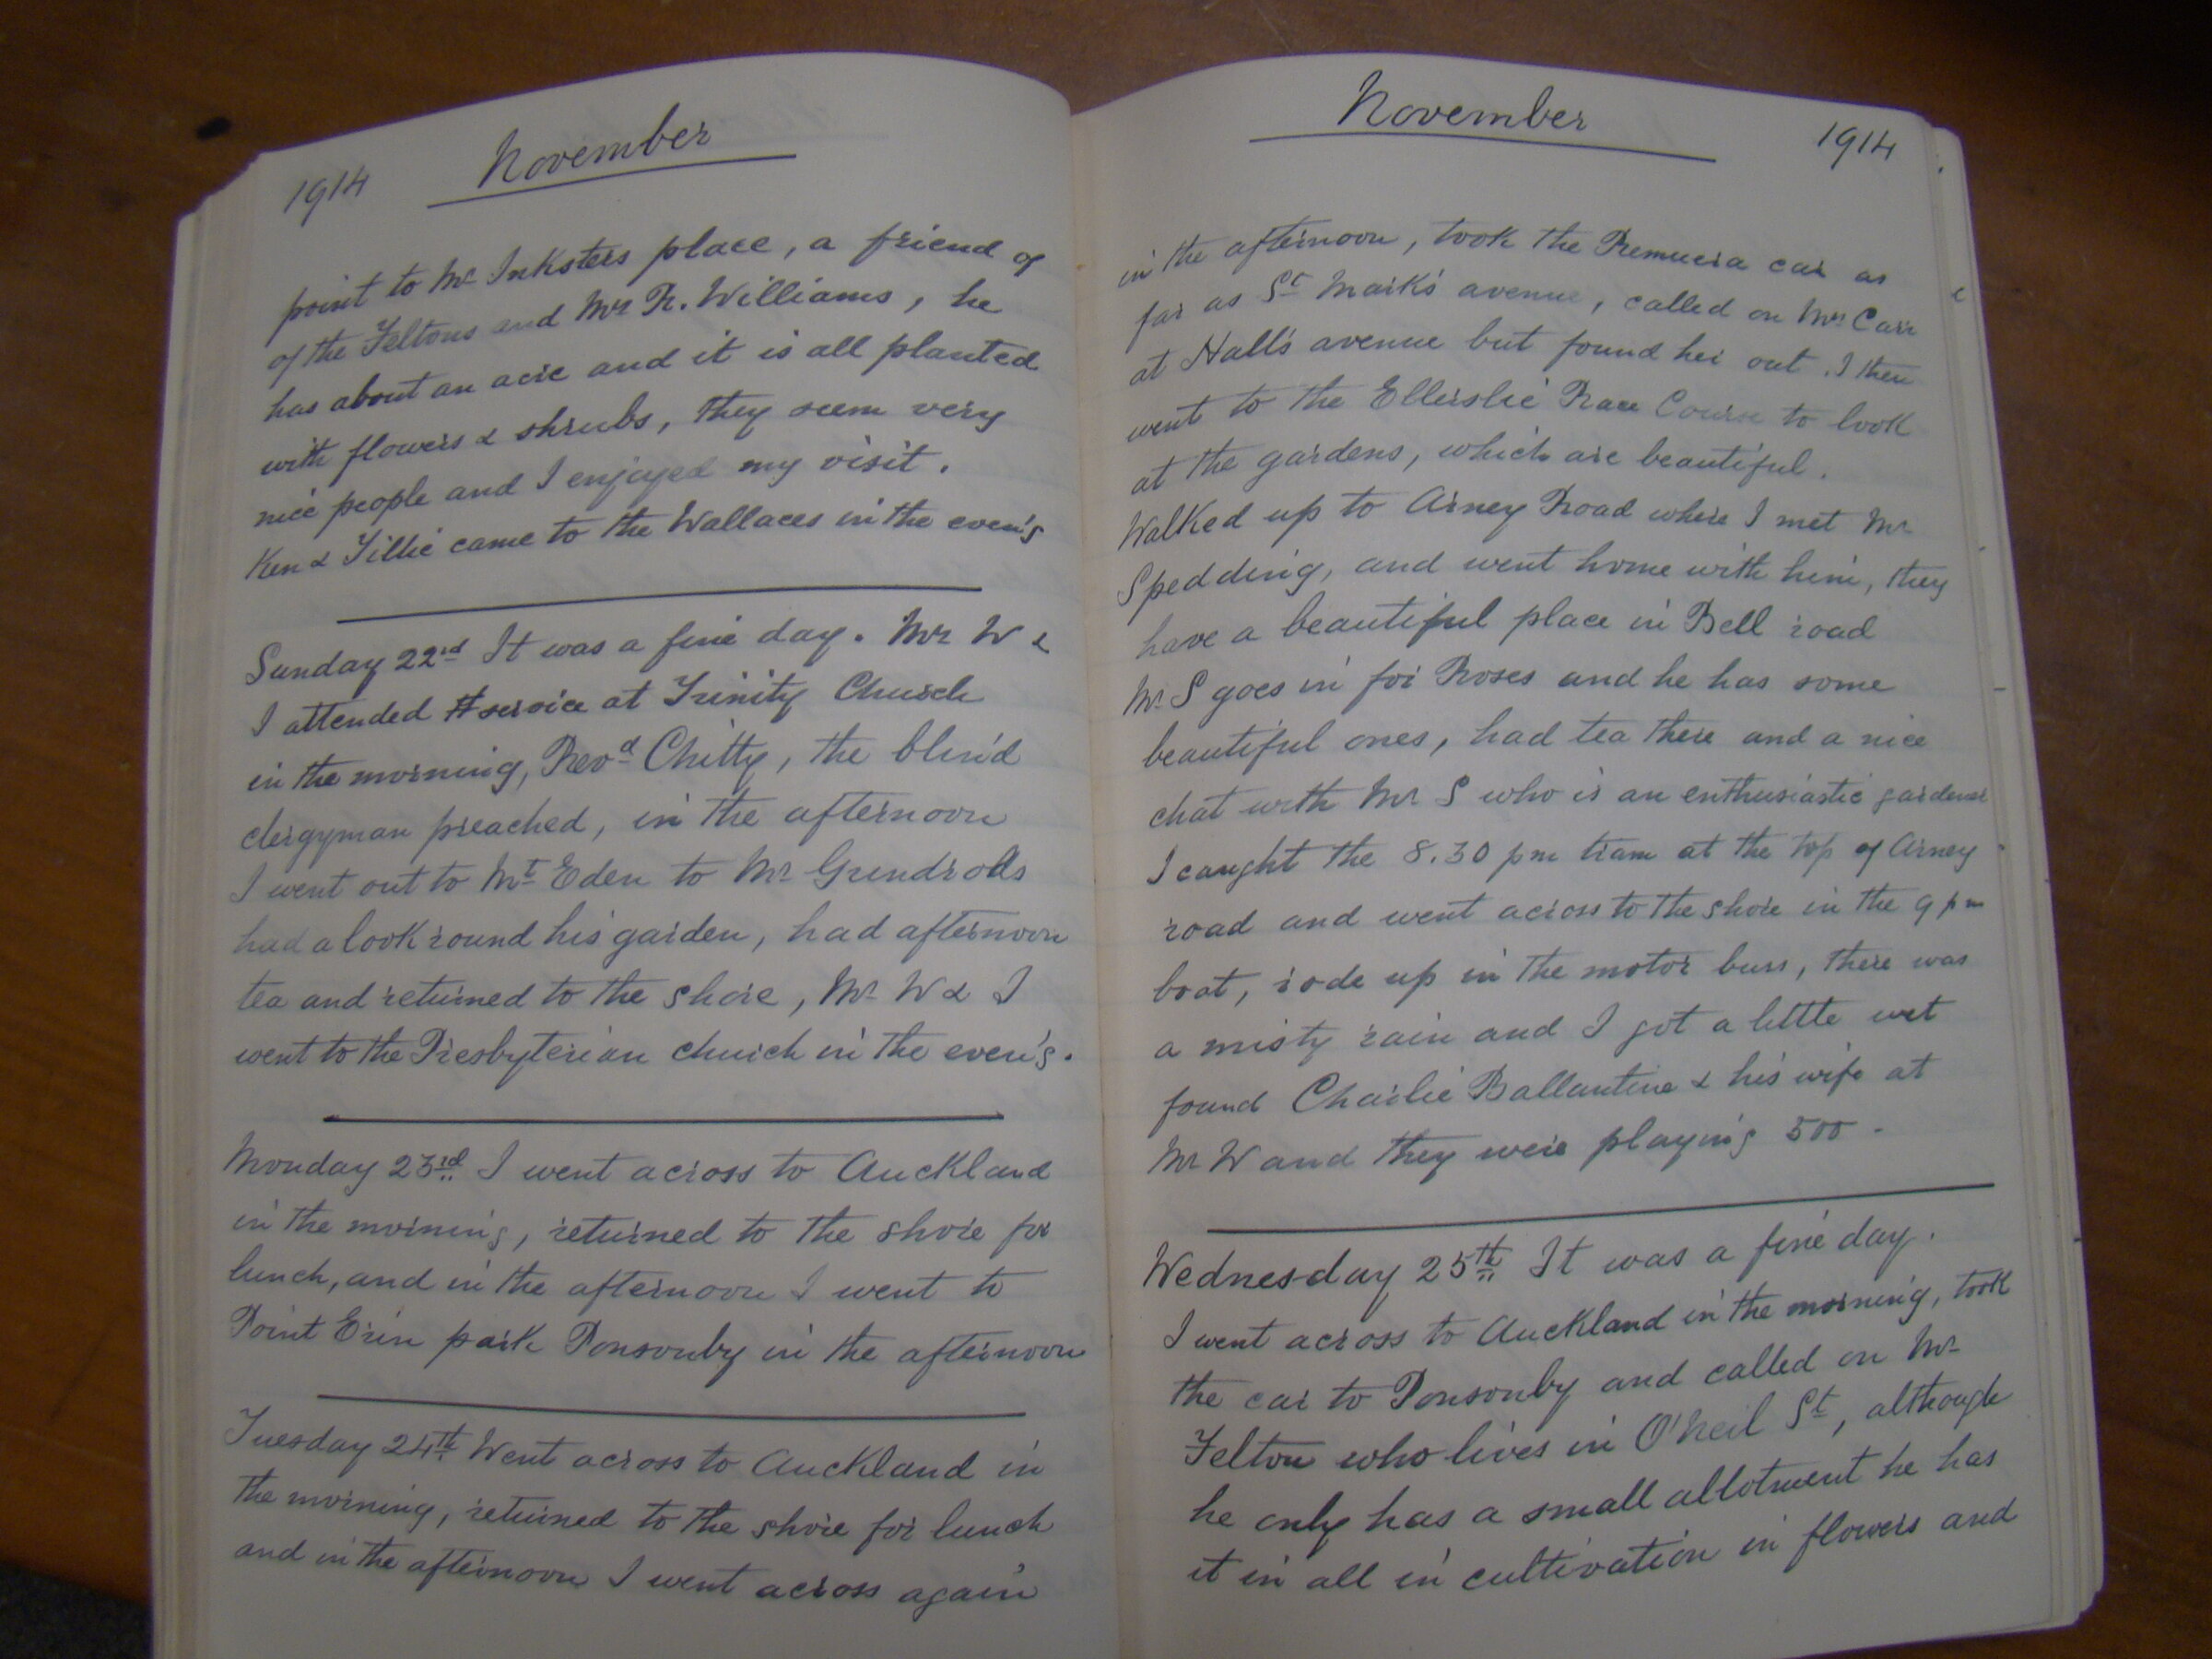 1914
November
point to Mr Inksters place, a friend of
of the Feltons and Mr R. Williams, he
has about an acre and it is all planted
with flowers & shrubs, they seem very
nice people and I enjoyed my visit.
Ken & Tillie came to the Wallaces in the even'g
Sunday 22nd It was a fine day. Mr W &
I attended service at Trinity Church
in the morning, Revd Chitty, the blind
clergyman preached, in the afternoon
I went out to Mt Eden to Mr Grindrods
had a look round his garden, had afternoon
tea and returned to the shore, Mr W & I
went to the Presbyterian church in the even'g.
Monday 23rd I went across to Auckland
in the morning, returned to the shore for
lunch, and in the afternoon I went to
Point Erin park Ponsonby in the afternoon
Tuesday 24th Went across to Auckland in
the morning, returned to the shore for lunch
and in the afternoon I went across again
November
1914
in the afternoon, took the Remuera car as
far as St Mark's avenue, called on Mrs Carr
at Hall's avenue but found her out. I then
went to the Ellerslie Race Course to look
at the gardens, which are beautiful.
Walked up to Arney Road where I met Mr
Spedding, and went home with him, they
have a beautiful place in Bell road
Mr S goes in for Roses and he has some
beautiful ones, had tea there and a nice
chat with Mr S who is an enthusiastic gardener
I caught the 8.30 pm tram at the top of Arney
road and went across to the shore in the 9 pm
boat, rode up in the motor buss, there was
a misty rain and I got a little wet
found Charlie Ballantine & his wife at
Mr W and they were playing 500.
Wednesday 25th It was a fine day.
I went across to Auckland in the morning, took
the car to Ponsonby and called on Mr
Felton who lives in O'Neil St, although
he only has a small allotment he has
it in all in cultivation in flowers and